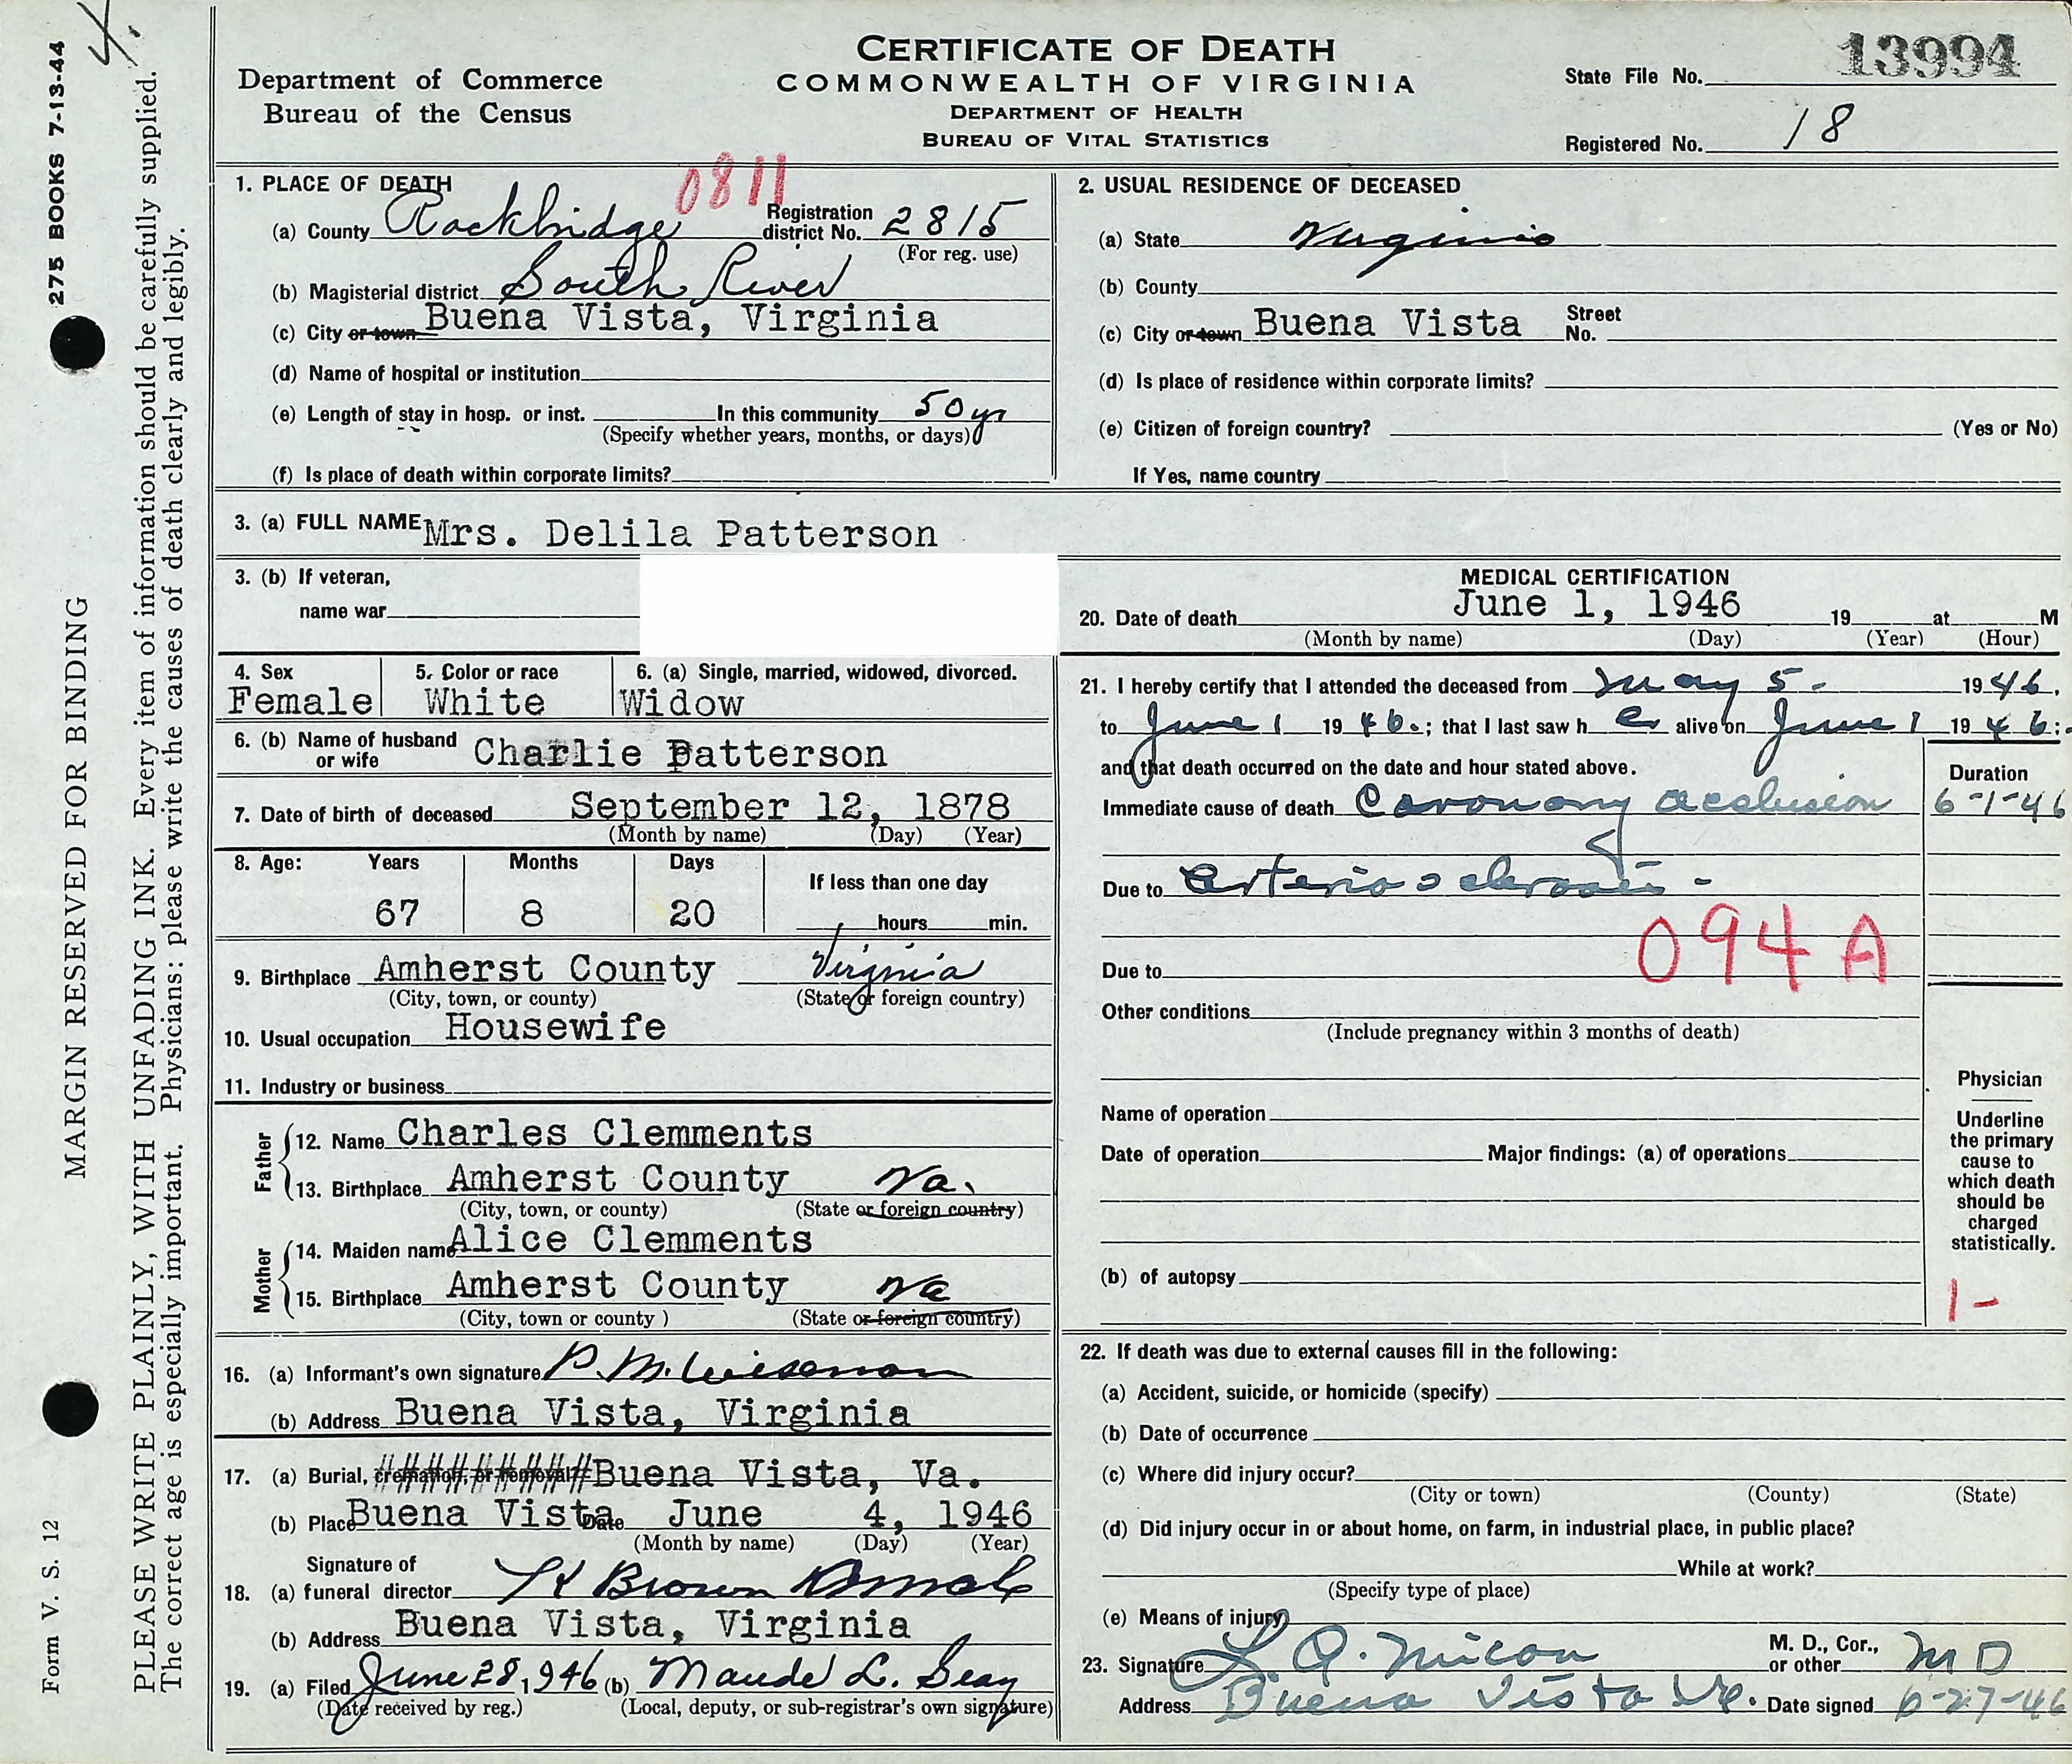 4.
275 BOOKS 7-13-44
MARGIN RESERVED FOR BINDING
PLEASE WRITE PLAINLY, WITH UNFADING INK. Every item of information should be carefully supplied.
The correct age is especially important. Physicians: please write the causes of death clearly and legibly.
Form V. S. 12
Department of Commerce
Bureau of the Census
CERTIFICATE OF DEATH
COMMONWEALTH OF VIRGINIA
DEPARTMENT OF HEALTH
BUREAU OF VITAL STATISTICS
State File No. 13994
Registered No. 18
1. PLACE OF DEATH
0811
(a) County Rockbridge Registration district No. 2815
(For reg. use)
(b) Magisterial district South River
(c) City or town Buena Vista, Virginia
(d) Name of hospital or institution
(e) Length of stay in hosp. or inst. In this community 50 yr
(Specify whether years, months, or days)
(f) Is place of death within corporate limits?
2. USUAL RESIDENCE OF DECEASED
(a) State Virginia
(b) County
(c) City or town Buena Vista Street No.
(d) Is place of residence within corporate limits?
(e) Citizen of foreign country? (Yes or No)
If Yes, name country
3. (a) FULL NAME Mrs. Delila Patterson
3. (b) If veteran,
name war
4. Sex 5. Color or race 6. (a) Single, married, widowed, divorced.
Female White Widow
6. (b) Name of husband or wife Charlie Patterson
7. Date of birth of deceased September 12, 1878
(Month by name) (Day) (Year)
8. Age: Years Months Days If less than one day
67 8 20 hours min.
9. Birthplace Amherst County Virginia
(City, town, or county) (State or foreign country)
10. Usual occupation Housewife
11. Industry or business
Father
12. Name Charles Clemments
13. Birthplace Amherst County Va.
(City, town, or county) (State or foreign country)
Mother
14. Maiden name Alice Clemments
15. Birthplace Amherst County Va
(City, town or county ) (State or foreign country)
16. (a) Informant's own signature P. M. Wiseman
(b) Address Buena Vista, Virginia
17. (a) Burial, cremation, or removal? Buena Vista, Va.
(b) Place Buena Vista Date June 4, 1946
(Month by name) (Day) (Year)
Signature of
18. (a) funeral director Brown
(b) Address Buena Vista, Virginia
19. (a) Filed June 28, 1946 (b) Maude L. Seay
(Date received by reg.) (Local, deputy, or sub-registrar's own signature)
MEDICAL CERTIFICATION
20. Date of death June 1, 1946 19 at M
(Month by name) (Day) (Year) (Hour)
21. I hereby certify that I attended the deceased from May 5- 1946,
to June 1 1946.; that I last saw h er alive on June 1 1946;
and that death occurred on the date and hour stated above.
Duration
Immediate cause of death Coronary occlusion 6-1-46
Due to Arteriosclerosis -
094A
Due to
Other conditions
(Include pregnancy within 3 months of death)
Name of operation
Date of operation Major findings: (a) of operations
(b) of autopsy
Physician
Underline
the primary
cause to
which death
should be
charged
statistically.
1-
22. If death was due to external causes fill in the following:
(a) Accident, suicide, or homicide (specify)
(b) Date of occurrence
(c) Where did injury occur?
(City or town) (County) (State)
(d) Did injury occur in or about home, on farm, in industrial place, in public place?
While at work?
(Specify type of place)
(e) Means of injury
23. Signature M. D., Cor., or other MD
Address Buena Vista Va. Date signed 6-27-46